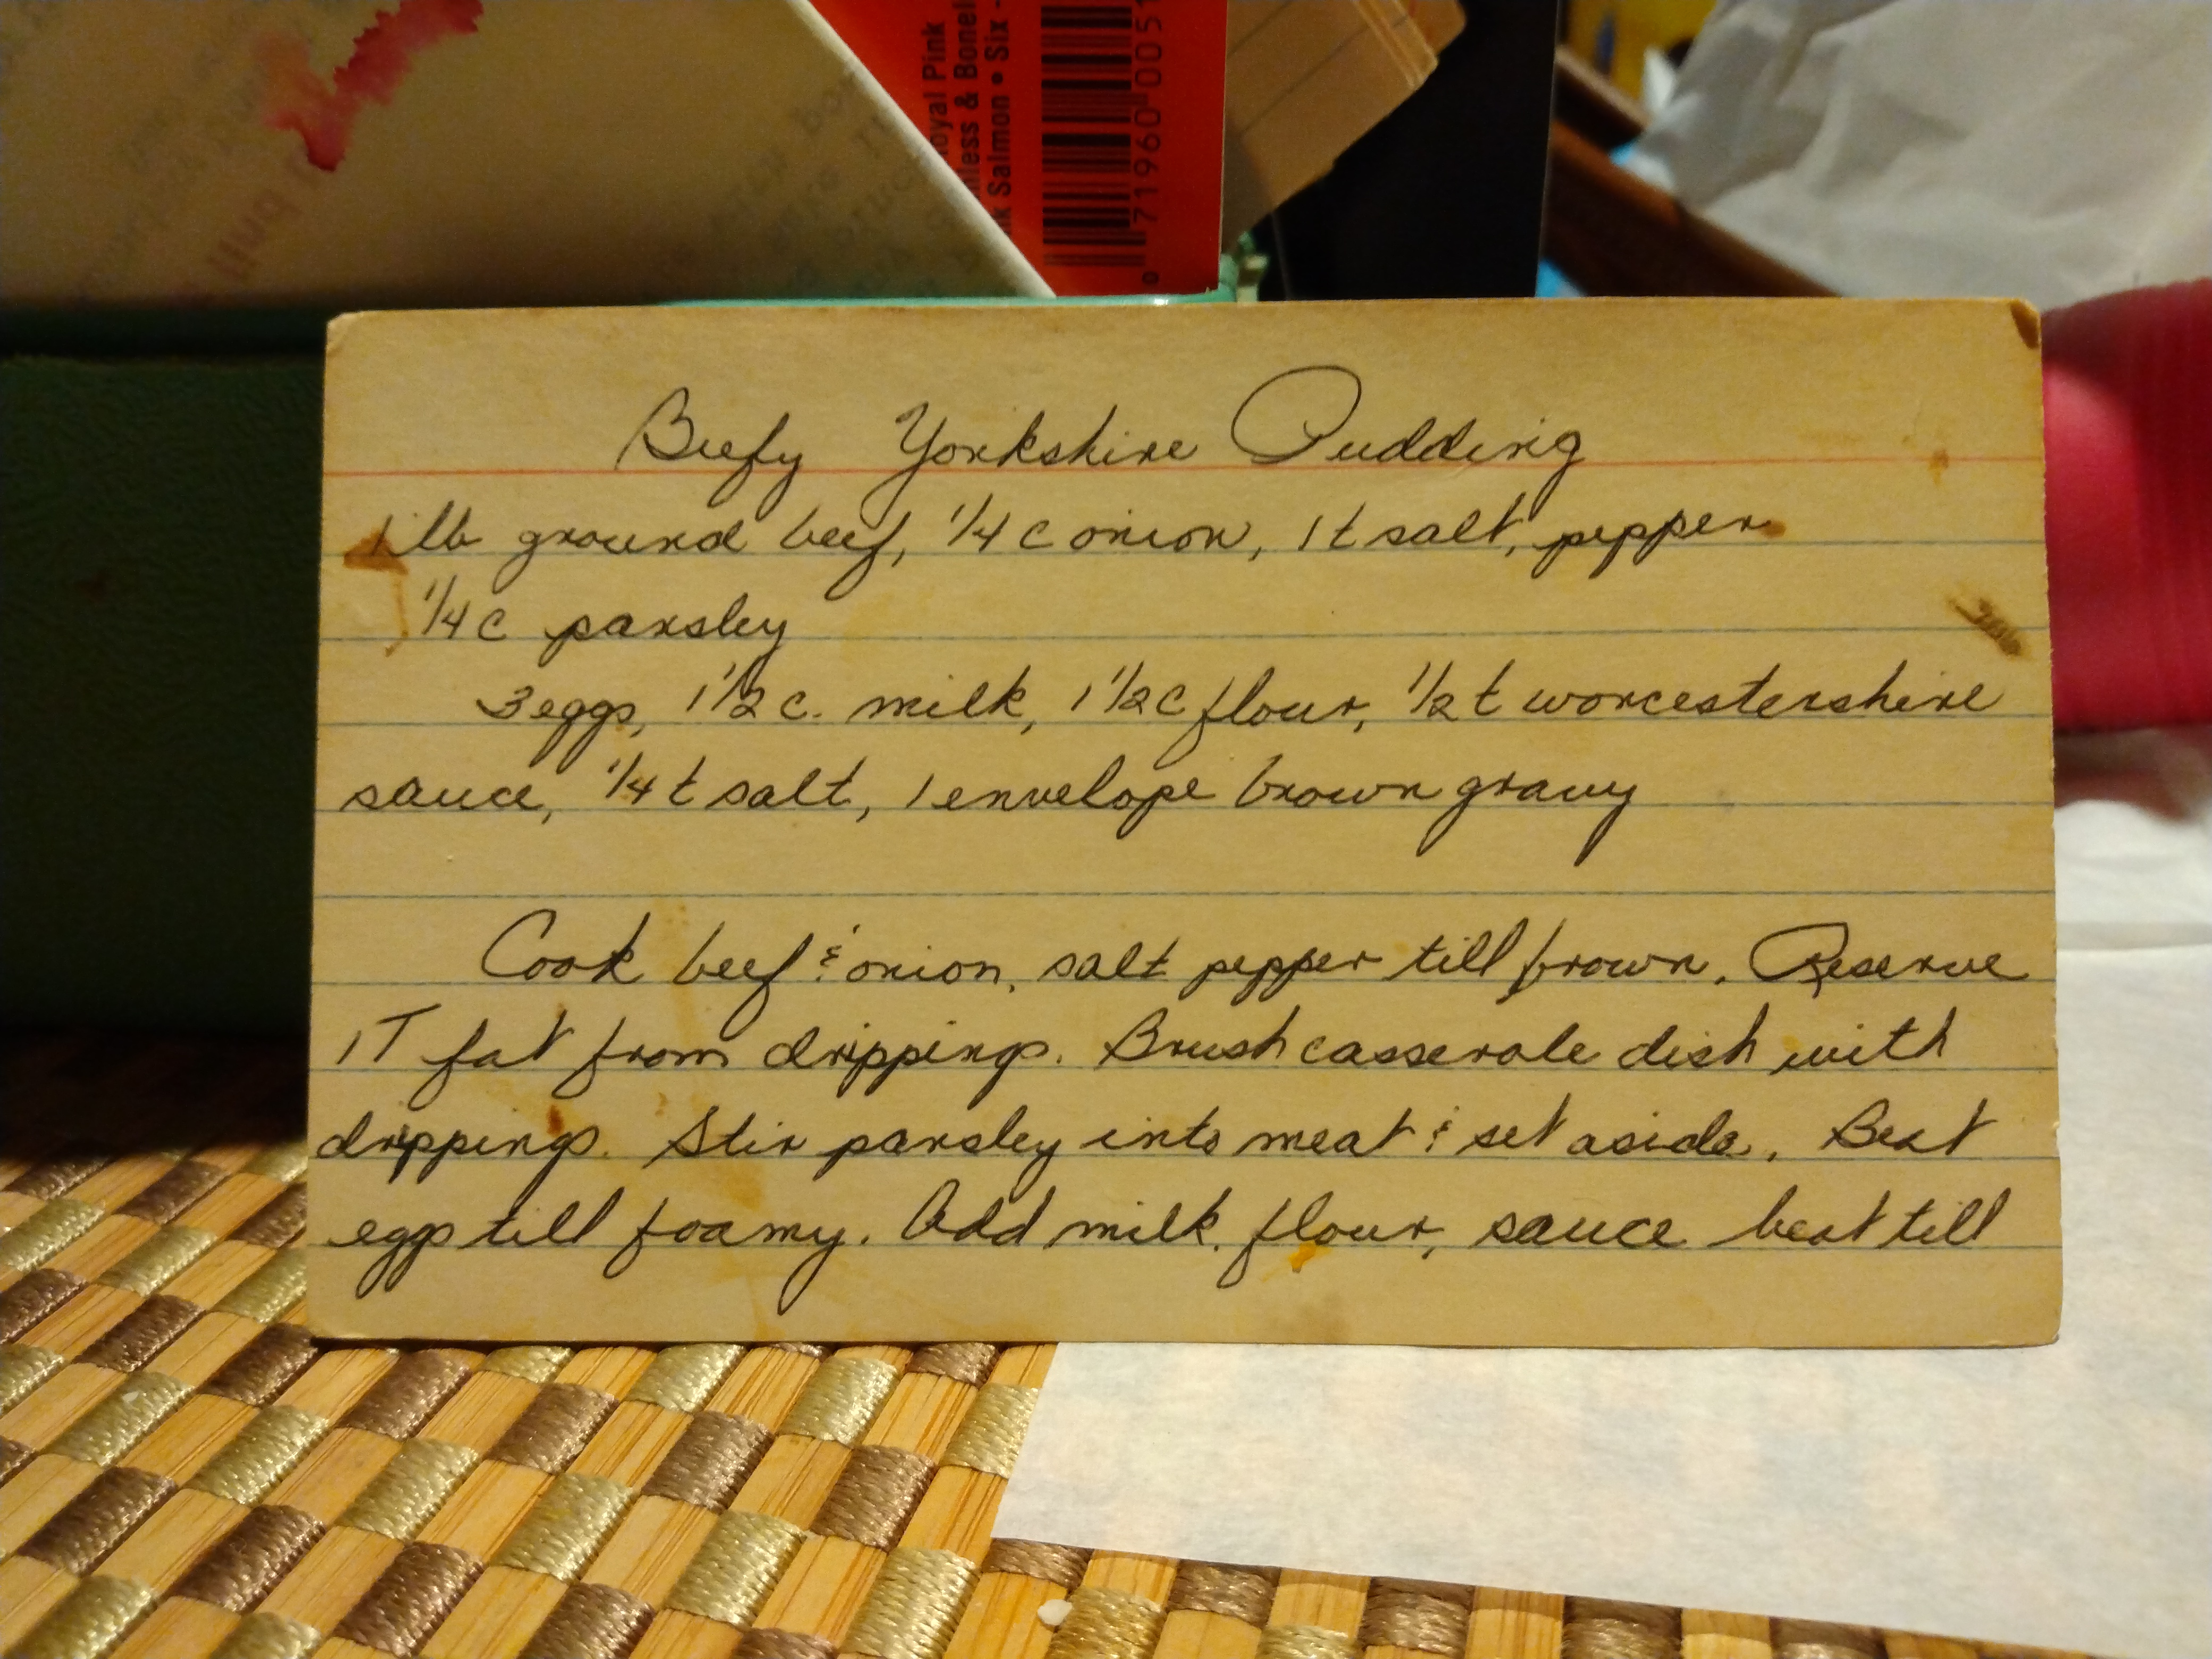 Royal Pink
nless & Bonel
nk Salmon • Six -
0 71960 0051
Beefy Yorkshire Pudding
1 lb ground beef, 1/4 c onion, 1 t salt, pepper
1/4 c parsley
3 eggs, 1 1/2 c. milk, 1 1/2 c flour, 1/2 t worcestershire
sauce, 1/4 t salt, 1 envelope brown gravy
Cook beef & onion, salt pepper till brown. Reserve
1 T fat from drippings. Brush casserole dish with
drippings. Stir parsley into meat & set aside. Beat
eggs till foamy. Add milk, flour, sauce beat till